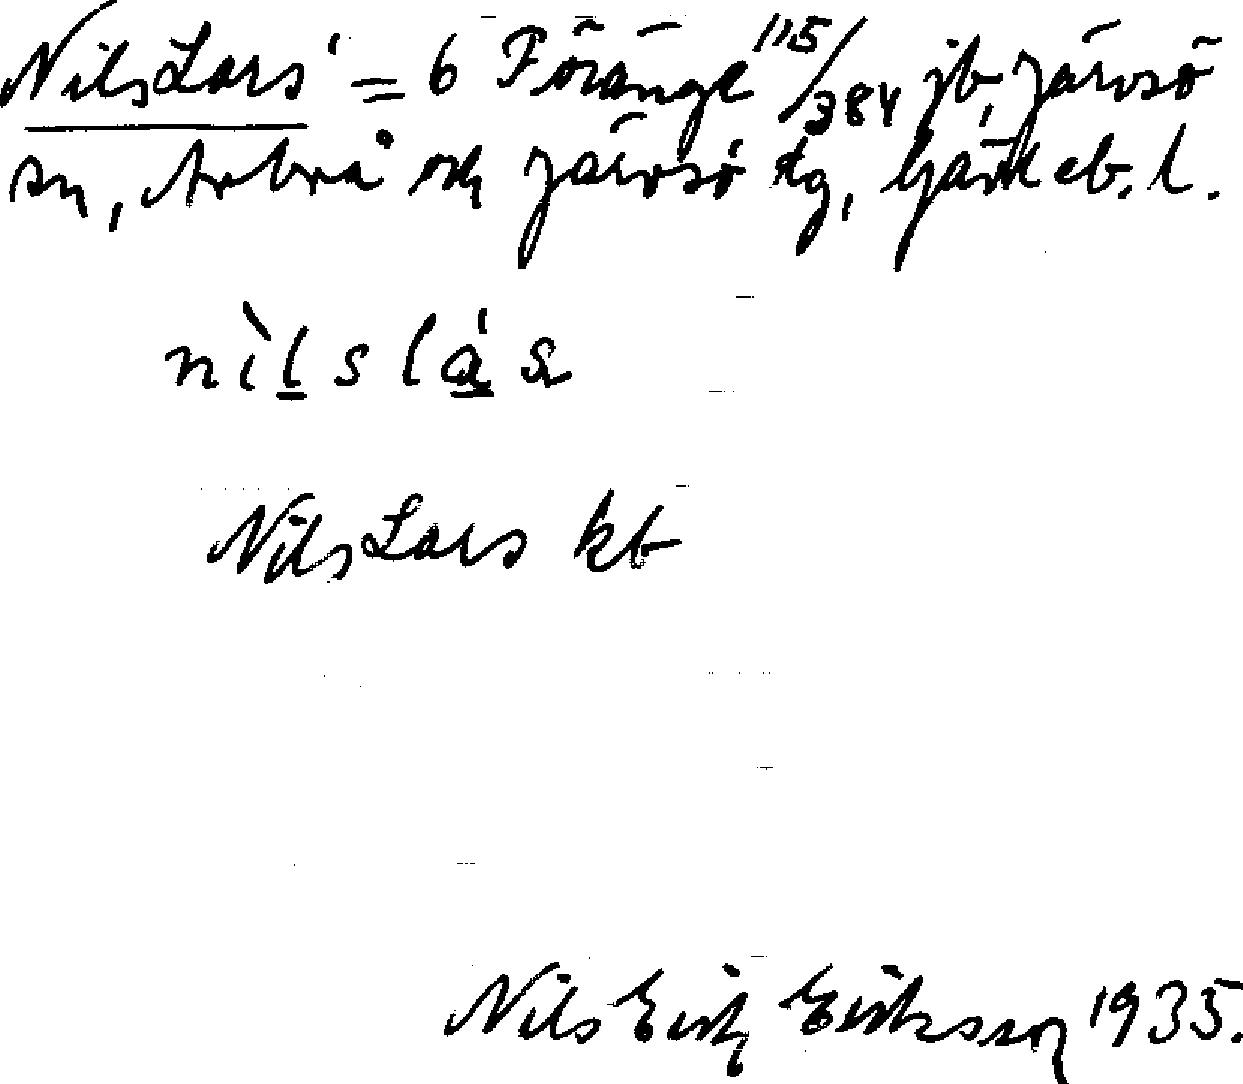 Nils Lars' = 6 Föränge 115/384 jb, Järvsö
sn, Arbrå och Järvsö tg, Gävleb. l.
nìlslás
Nils Lars kb
Nils Erik Eriksson 1935.